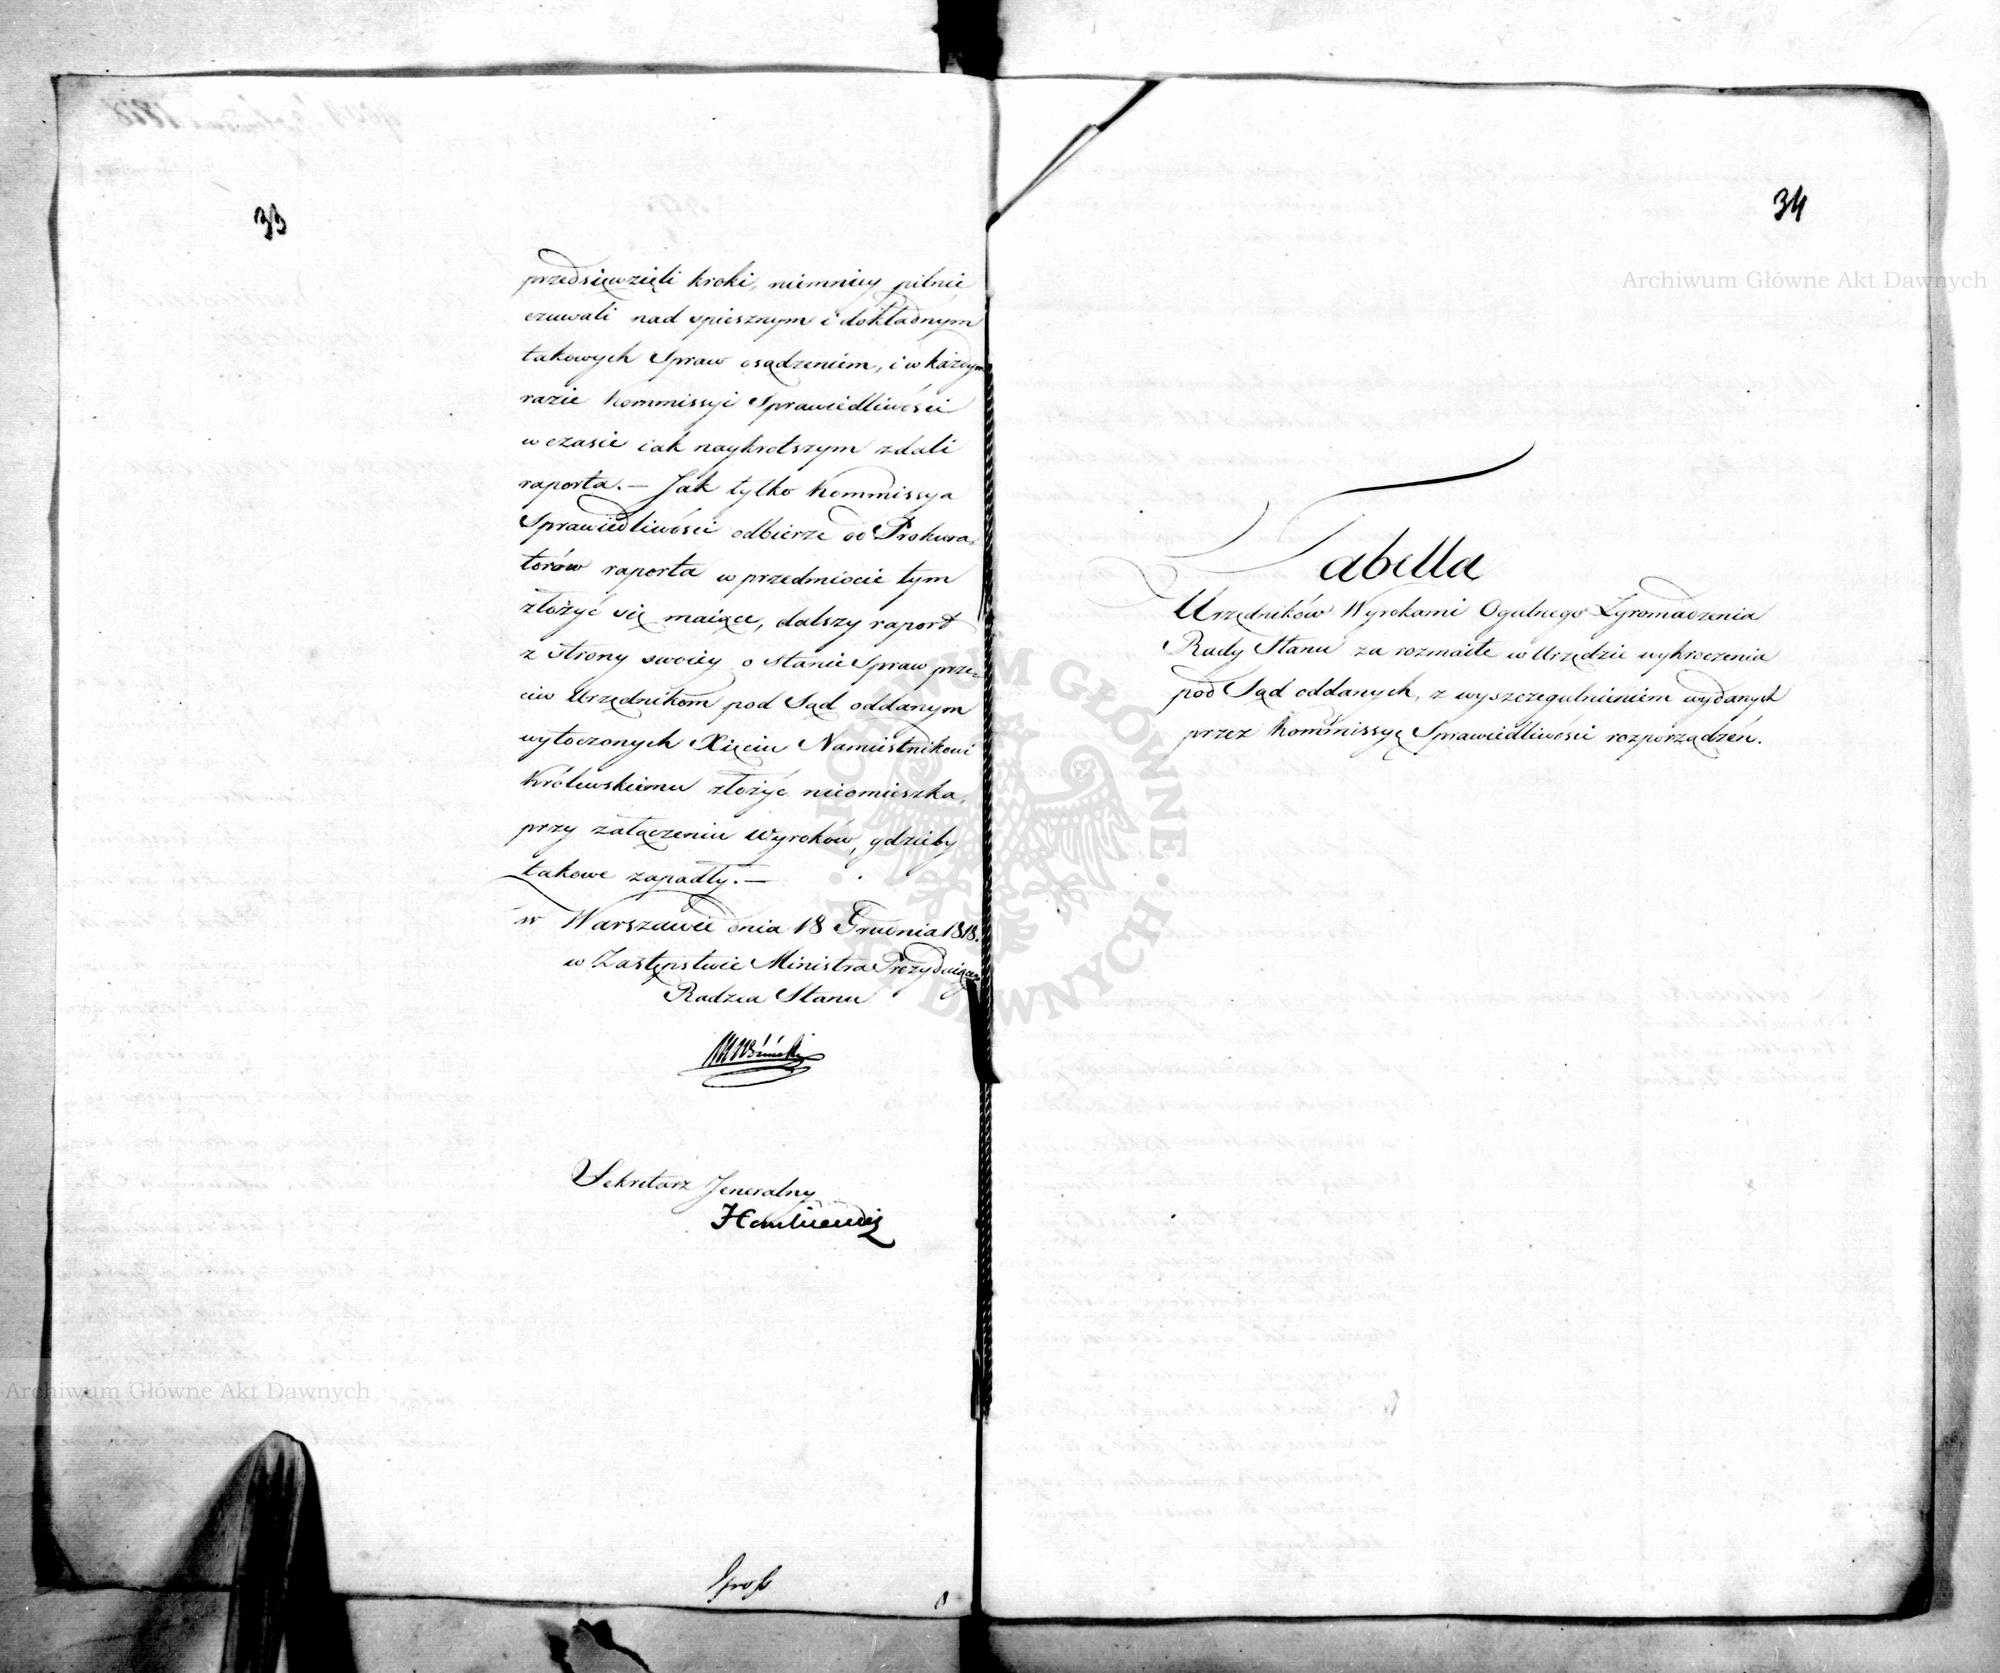 33
przedsięwzięli kroki, niemniey pilnie
czuwali nad spiesznym i dokładnym
takowych Spraw osądzeniem, i w każdym
razie Kommissyi Sprawiedliwości
w czasie iak naykrotszym zdali
raporta.— Jak tylko Kommissya
Sprawiedliwości odbierze od Prokura-
torów raporta w przedmiocie tym
złożyć się maiące, dalszy raport
z strony swoiey o stanie Spraw prze-
ciw Urzędnikom pod Sąd oddanym
wytoczonych Xięciu Namiestnikowi
Królewskiemu złożyć nieomieszka,
przy załączeniu Wyroków, gdzieby
takowe zapadły.—
w Warszawie dnia 18 Grudnia 1818.
w Zastępstwie Ministra Prezyduiącego
Radzca Stanu
Sekretarz Jeneralny
34
Archiwum Główne Akt Dawnych
Tabella
Urzędników Wyrokami Ogulnego Zgromadzenia
Rady Stanu za rozmaite w Urzędzie wykroczenia
pod Sąd oddanych, z wyszczegulnieniem wydanych
przez Kommissyę Sprawiedliwości rozporządzeń.
ARCHIWUM GŁÓWNE · AKT DAWNYCH ·
Archiwum Główne Akt Dawnych